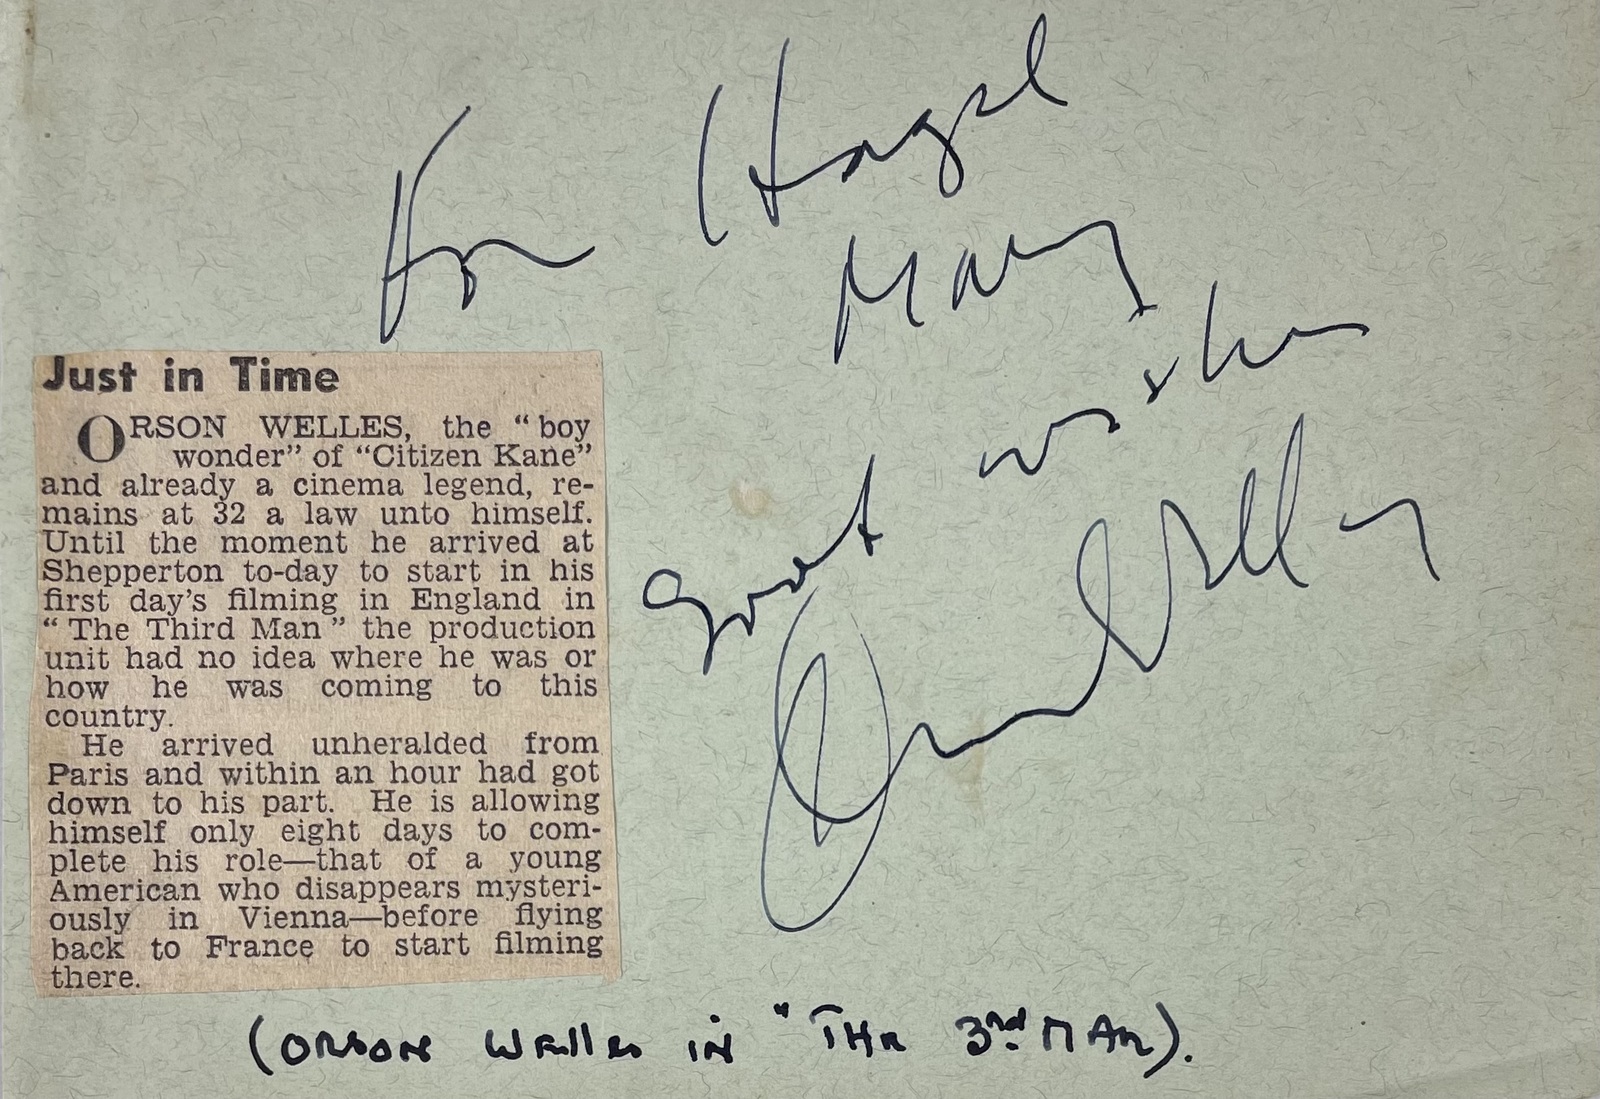 For Hazel
Many
good wishes
Orson Welles
Just in Time
ORSON WELLES, the “boy
wonder” of “Citizen Kane”
and already a cinema legend, re-
mains at 32 a law unto himself.
Until the moment he arrived at
Shepperton to-day to start in his
first day’s filming in England in
“The Third Man” the production
unit had no idea where he was or
how he was coming to this
country.
He arrived unheralded from
Paris and within an hour had got
down to his part. He is allowing
himself only eight days to com-
plete his role—that of a young
American who disappears mysteri-
ously in Vienna—before flying
back to France to start filming
there.
(ORSON Welles in "THE 3rd MAN).